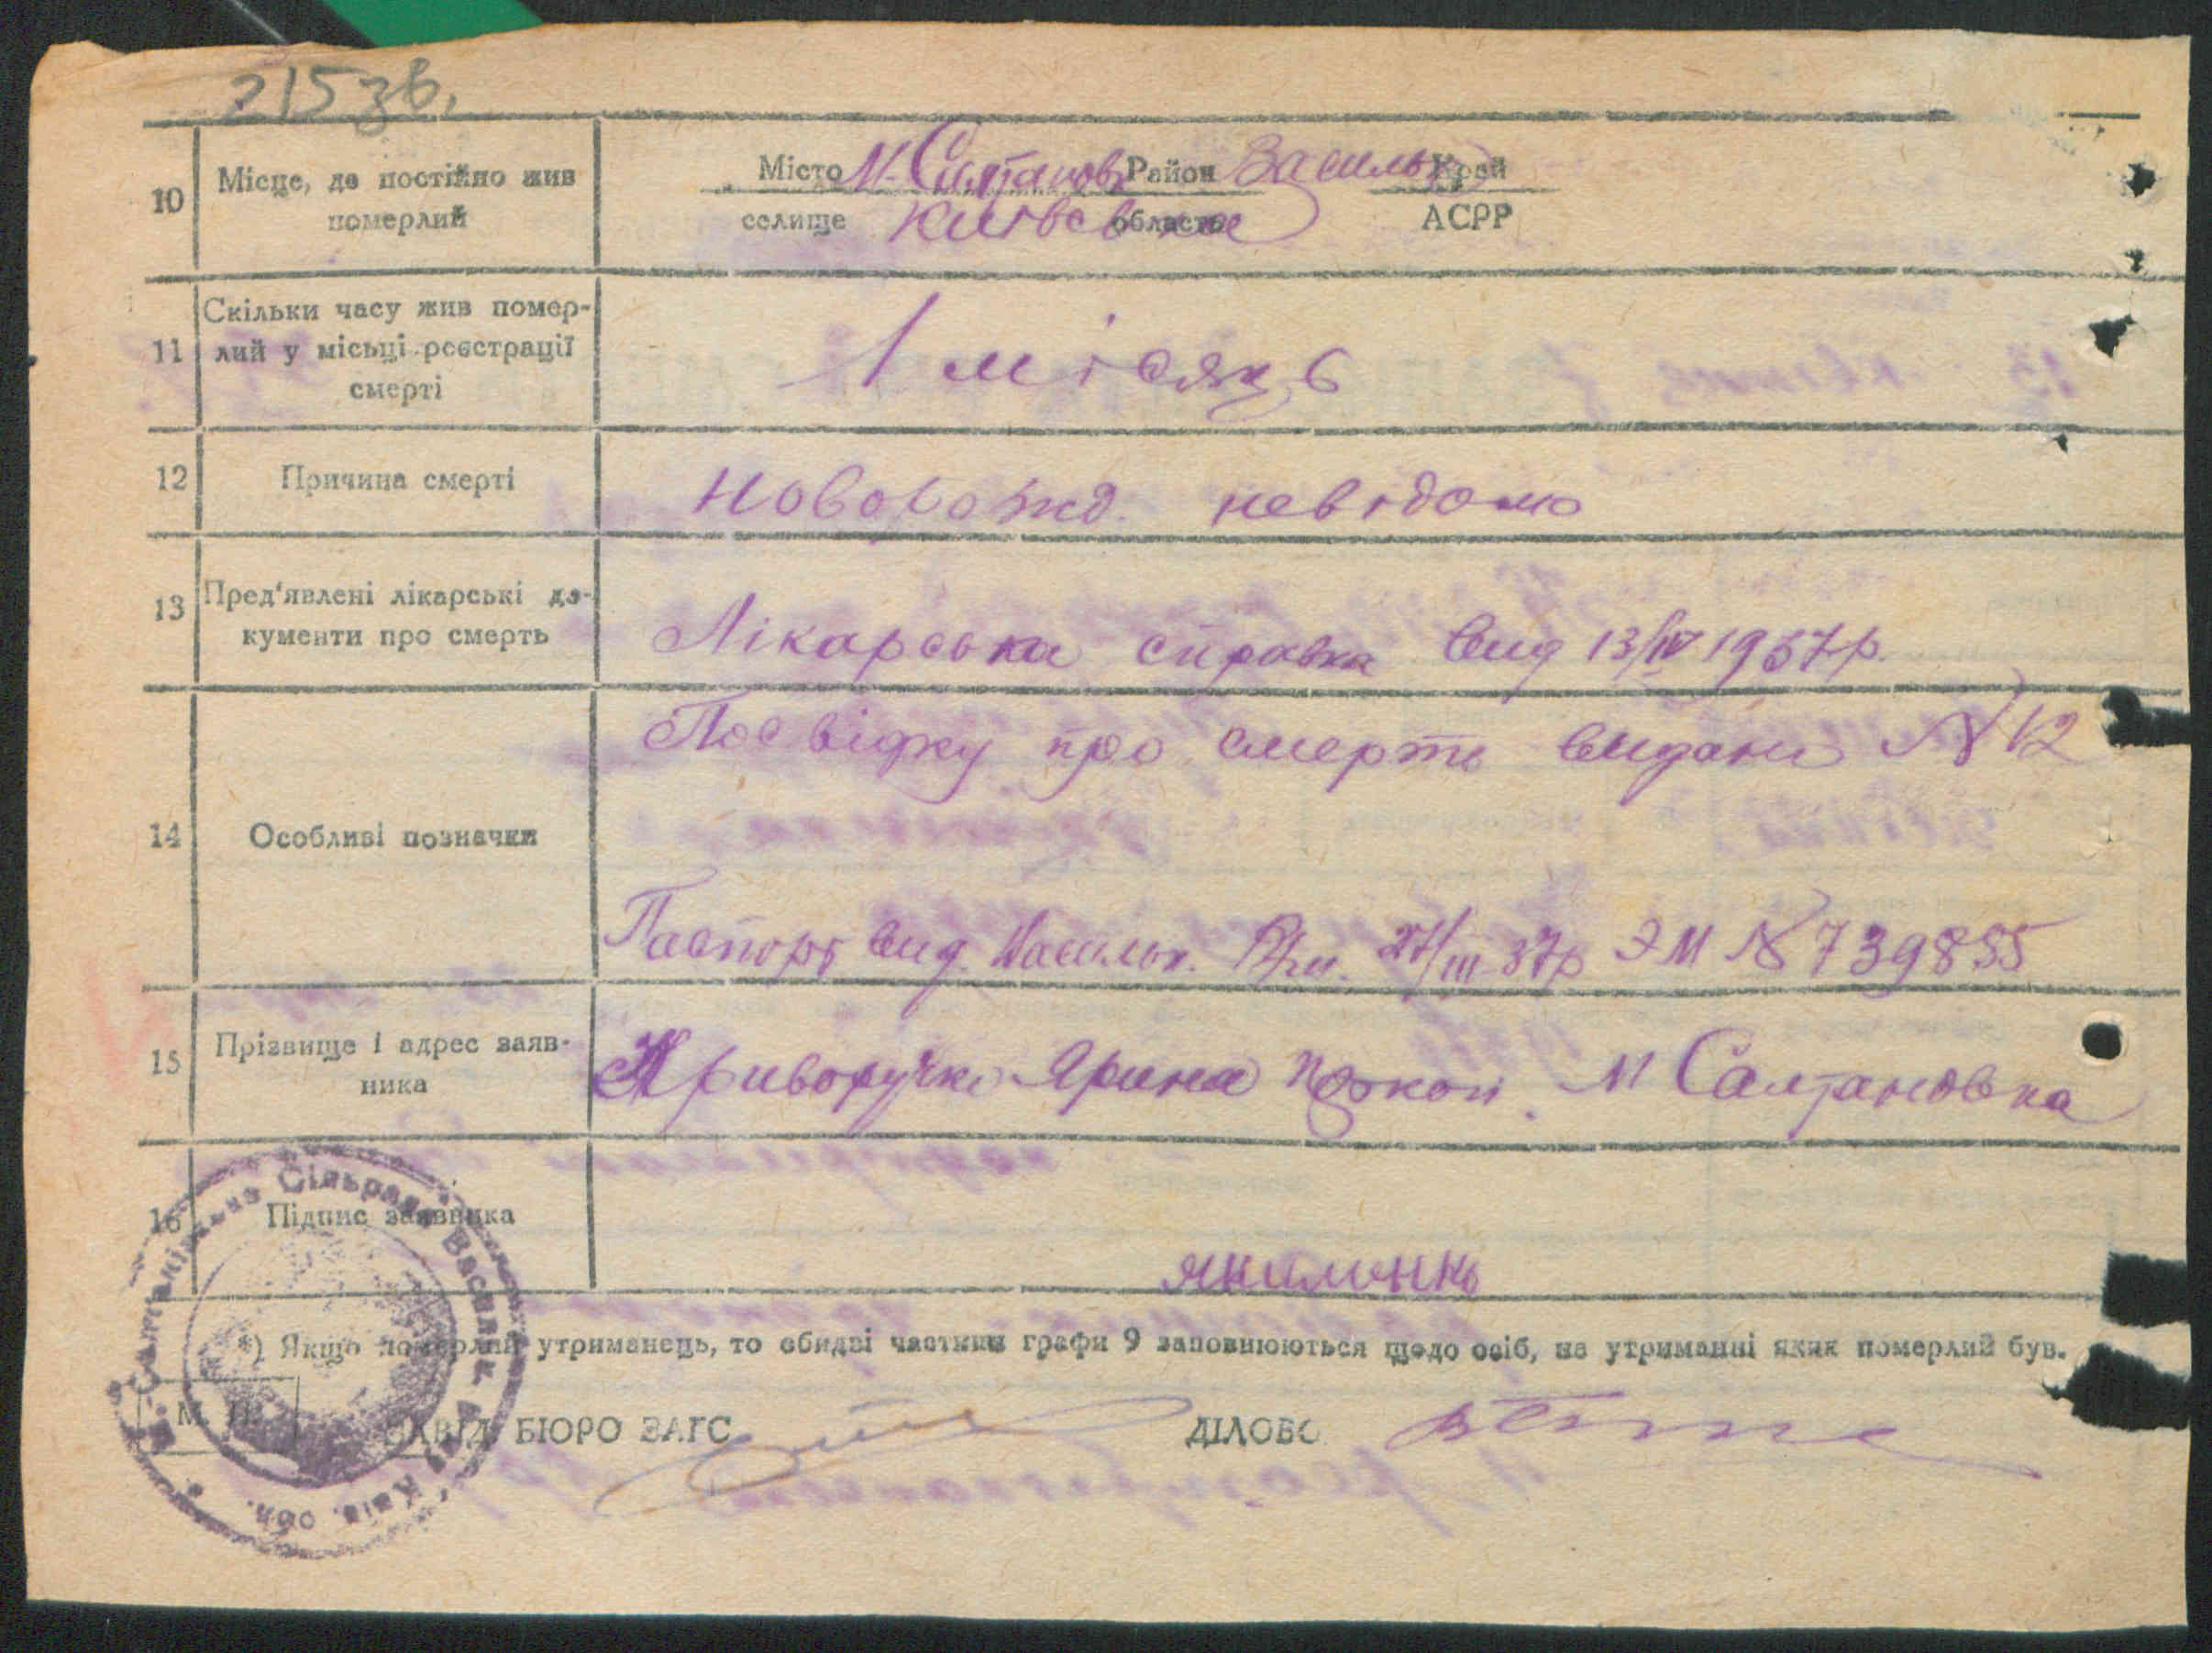 2153б.
10 Місце, де постійно жив
померлий
Місто М-Салтановка Район Васильк Край
селище Київська область АСРР
11 Скільки часу жив помер-
лий у місьці реєстрації
смерті
1 місяць
12 Причина смерті
Новорожд. невідомо
13 Пред'явлені лікарські до-
кументи про смерть
Лікарська справка вид 13/IV 1937р.
14 Особливі позначки
Посвідку про смерть видани № 12
Паспорт вид. Васильк. 27/III-37р ЭМ № 739855
15 Прізвище і адрес заяв-
ника
Криворучко Ярина М Салтановка
16 Підпис заявника
якименко
*) Якщо померлий утриманець, то обидві частини графи 9 заповнюються щодо осіб, на утриманні яких померлий був.
М. П. ЗАВІД. БЮРО ЗАГС ДІЛОВО
М.-Салтанівська Сільрада Васильк. Київ. обл.